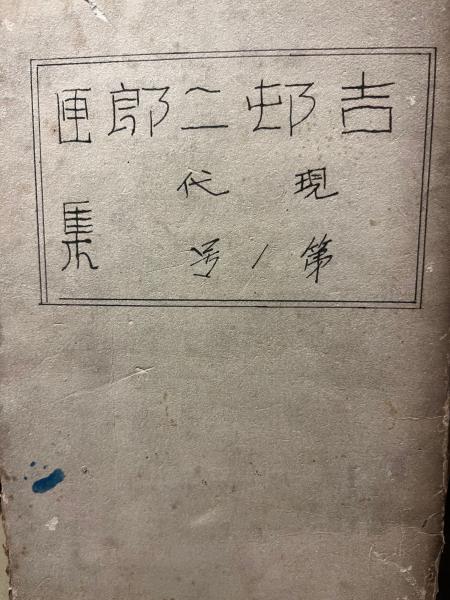 吉邨二郎画
現代
第1号
集